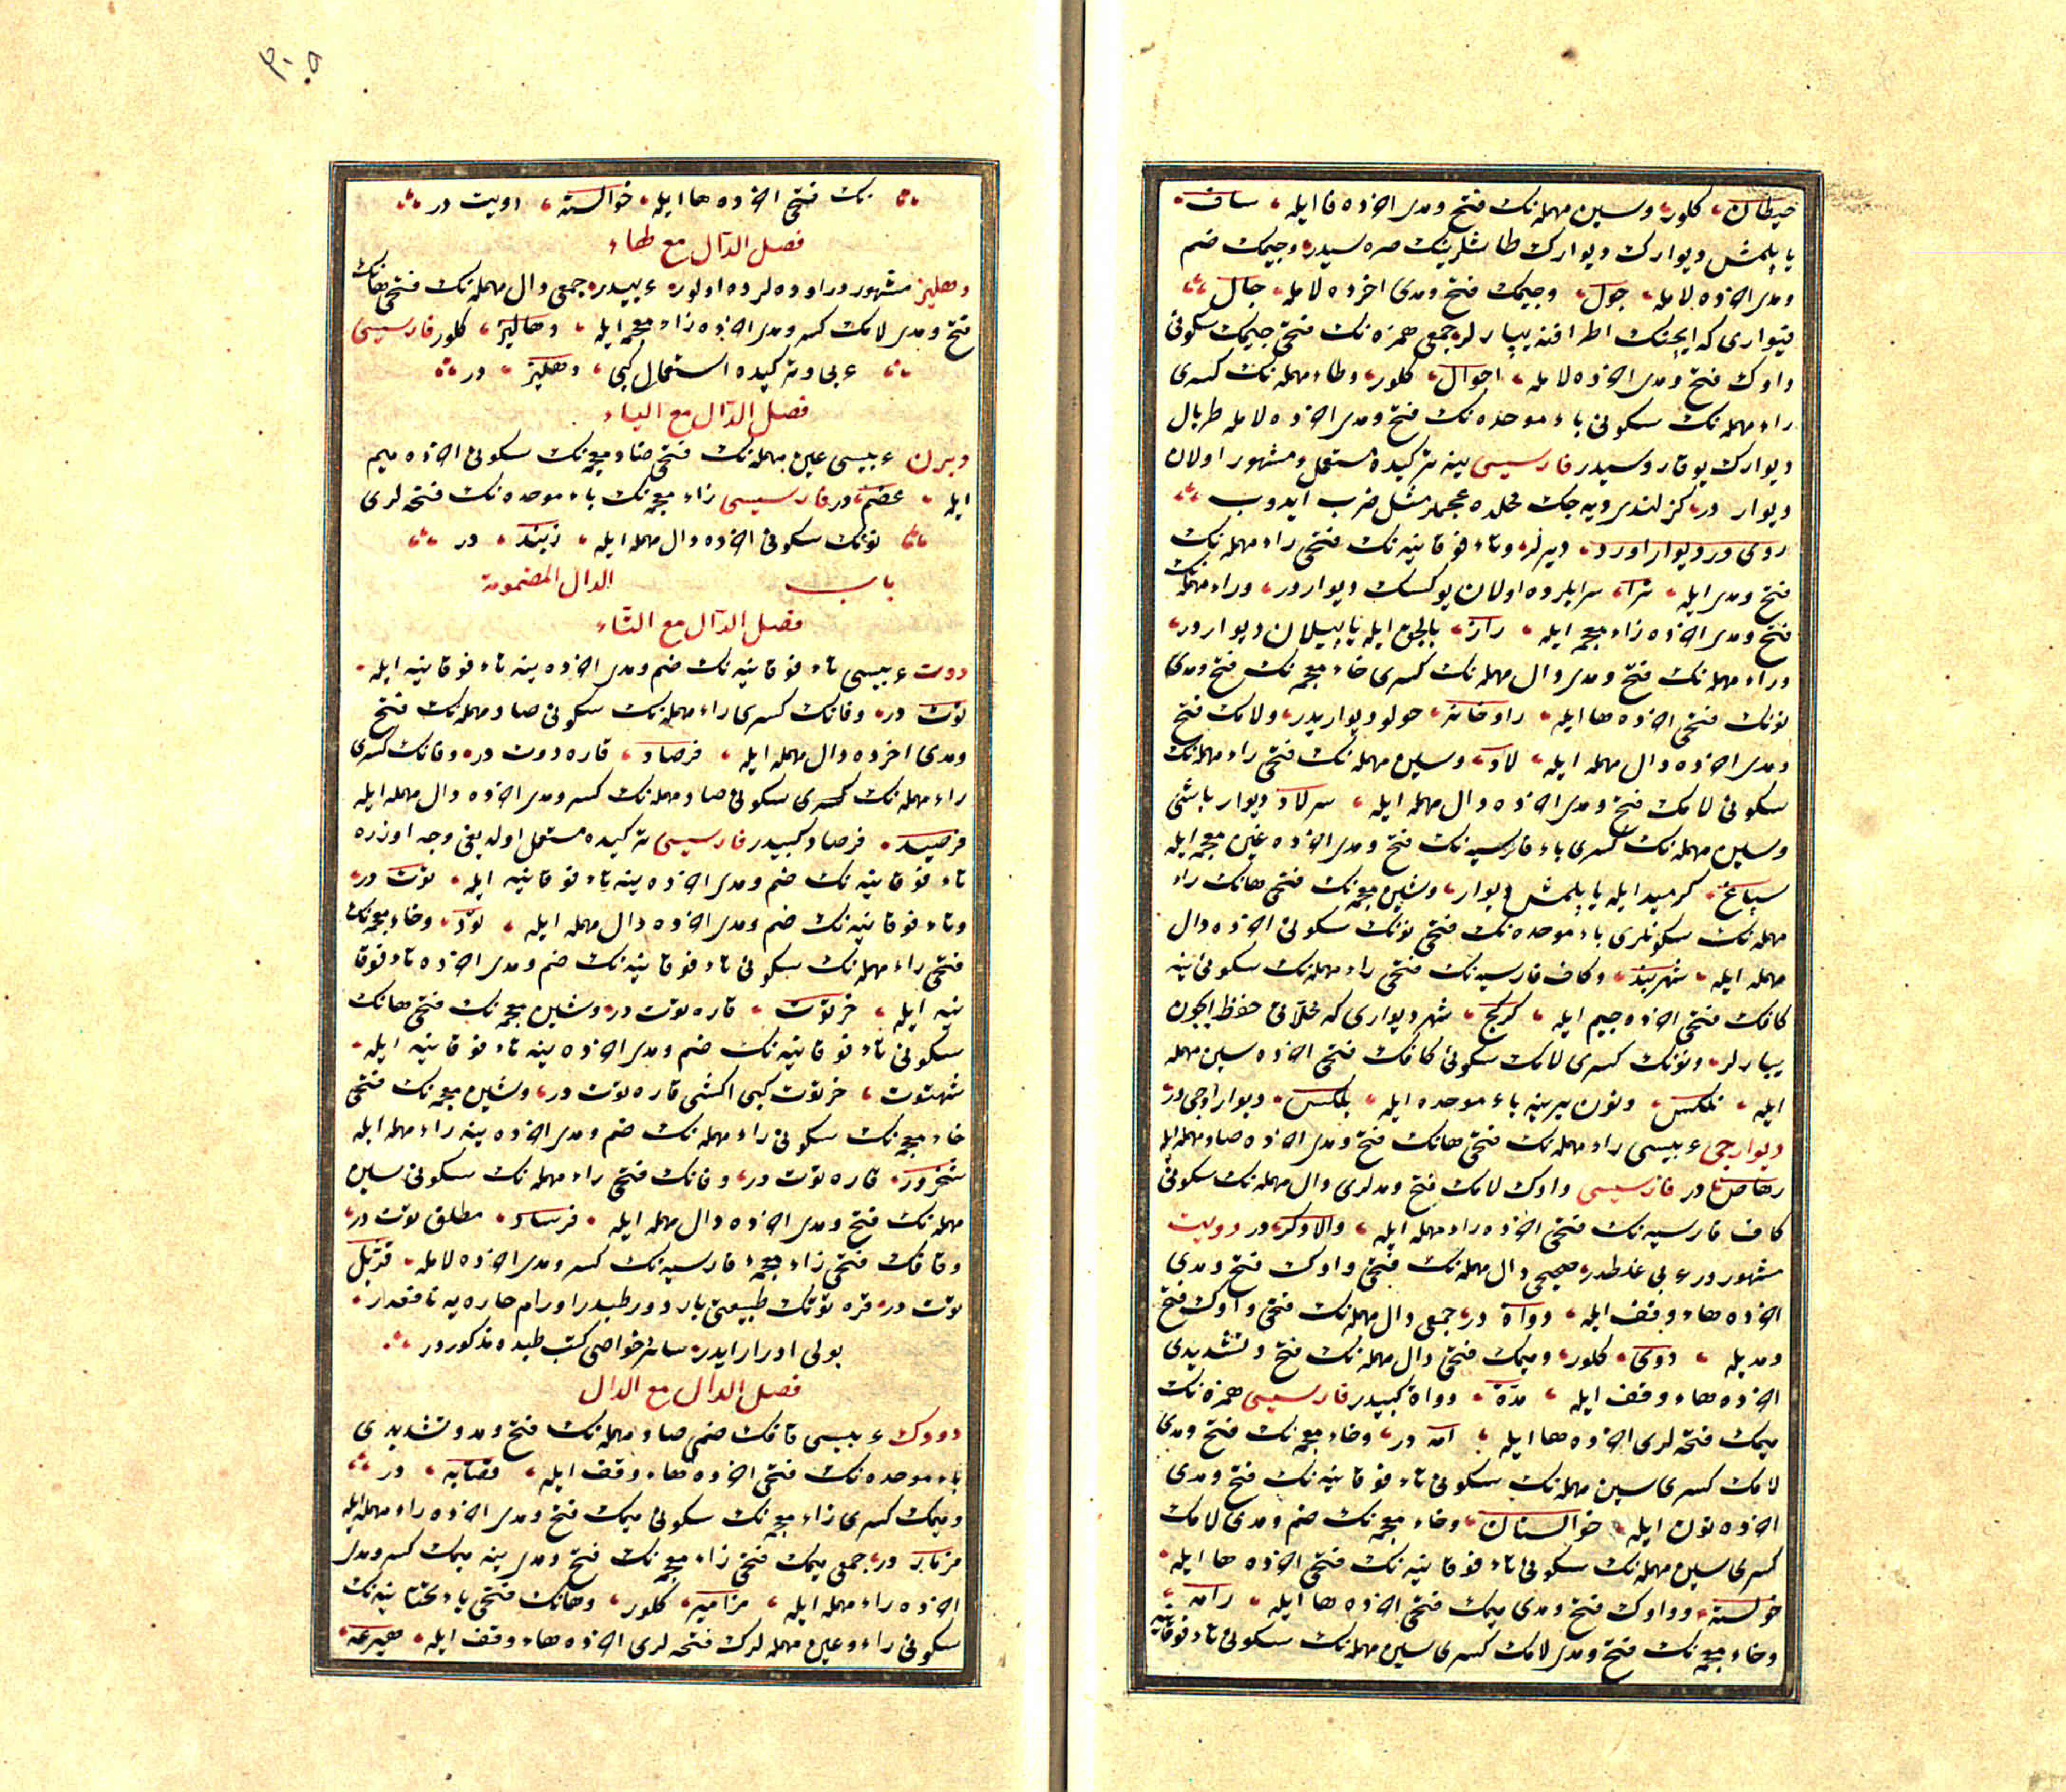 حیطان، کلور، وسین مهمله نک فتح ومدی اخرده فا ایله، ساف،
یاپلمش دیوارک دیوارک طاشلرینک صره سیدر، وجیمک ضم
ومدی اخرده لامله، جول، وجیمک فتح ومدی اخرده لامله، جال
قیواری که ایچنک اطرافنه یپارلر، جمعی همزه نک فتحی جیمک سکونی
واوک فتح ومدی اخرده لامله، اجوال، کلور، وطاء مهمله نک کسری
راء مهمله نک سکونی باء موحده نک فتح ومدی اخرده لامله طربال
دیوارک یوقاروسیدر فارسیسی ینه ترکیده مستعمل ومشهور اولان
دیوار در، کزلندیرویه جک محلده عجملر مثل ضرب ایدوب
روی در دیوار اورد، دیرلر، وتاء فوقانیه نک فتحی راء مهمله نک
فتح ومدی ایله، ترا، سرایلرده اولان یوکسک دیواردر، وراء مهمله نک
فتح ومدی اخرده زاء معجمه ایله، راز، بالجق ایله یاپیلان دیواردر،
وراء مهمله نک فتح ومدی دال مهمله نک کسری خاء معجمه نک فتح ومدی
نونک فتحی اخرده ها ایله، رادخانه، حولو دیواریدر، ولامک فتح
ومدی اخرده دال مهمله ایله، لاد، وسین مهمله نک فتحی راء مهمله نک
سکونی لامک فتح ومدی اخرده دال مهمله ایله، سرلاد دیوار باشی
وسین مهمله نک کسری باء فارسیه نک فتح ومدی اخرده غین معجمه ایله
سپاغ، کرمید ایله یاپلمش دیوار، وشین معجمه نک فتحی هانک راء
مهمله نک سکونلری باء موحده نک فتحی نونک سکونی اخرده دال
مهمله ایله، شهربند، وکاف فارسیه نک فتحی راء مهمله نک سکونی ینه
کافک فتحی اخرده جیم ایله، کرکج، شهر دیواری که محلاتی حفظ ایچون
یپارلر، ونونک کسری لامک سکونی کافک فتحی اخرده سین مهمله
ایله، نلکس، ونون یرینه باء موحده ایله، بلکس، دیوار اوجی در
دیوارجی عربیسی راء مهمله نک فتحی هانک فتح ومدی اخرده صاد مهمله ایله
رهاص در فارسیسی واوک لامک فتح ومدلری دال مهمله نک سکونی
کاف فارسیه نک فتحی اخرده راء مهمله ایله، والادکر، در دویت
مشهوردر عربی غلطدر، صحیحی دال مهمله نک فتحی واوک فتح ومدی
اخرده هاء وقف ایله، دواة در، جمعی دال مهمله نک فتحی واوک فتح
ومدیله، دوی، کلور، ومیمک فتحی دال مهمله نک فتح وتشدیدی
اخرده هاء وقف ایله، مدة، دواة کبیدر فارسیسی همزه نک
میمک فتحه لری اخرده ها ایله، امه در، وخاء معجمه نک فتح ومدی
لامک کسری سین مهمله نک سکونی تاء فوقانیه نک فتح ومدی
اخرده نون ایله، خوالستان، وخاء معجمه نک ضم ومدی لامک
کسری سین مهمله نک سکونی تاء فوقانیه نک فتحی اخرده ها ایله،
خولسته، وواوک فتح ومدی میمک فتحی اخرده ها ایله، رامه
وخاء معجمه نک فتح ومدی لامک کسری سین مهمله نک سکونی تاء فوقانیه
۳۰۵
نک فتحی اخرده ها ایله، خوالسته، دویت در
فصل الدال مع الهاء
دهلیز مشهوردر اوده لرده اولور، عربیدر، جمعی دال مهمله نک فتحی هانک
فتح ومدی لامک کسر ومدی اخرده زاء معجمه ایله، دهالیز، کلور فارسیسی
عربی وترکیده استعمال کبی، دهلیز، در
فصل الدال مع الیاء
دیرن عربیسی عین مهمله نک فتحی ضاد معجمه نک سکونی اخرده میم
ایله، عضم، در فارسیسی زاء معجمه نک باء موحده نک فتحه لری
نونک سکونی اخرده دال مهمله ایله، زبند، در
باب الدال المضمومة
فصل الدال مع التاء
دوت عربیسی تاء فوقانیه نک ضم ومدی اخرده ینه تاء فوقانیه ایله،
توت در، وفانک کسری راء مهمله نک سکونی صاد مهمله نک فتح
ومدی اخرده دال مهمله ایله، فرصاد، قاره دوت در، وفانک کسری
راء مهمله نک سکونی صاد مهمله نک کسر ومدی اخرده دال مهمله ایله
فرصید، فرصاد کبیدر فارسیسی ترکیده مستعمل اولدیغی وجه اوزره
تاء فوقانیه نک ضم ومدی اخرده ینه تاء فوقانیه ایله، توت در،
وتاء فوقانیه نک ضم ومدی اخرده دال مهمله ایله، تود، وخاء معجمه نک
فتحی راء مهمله نک سکونی تاء فوقانیه نک ضم ومدی اخرده تاء فوقا
نیه ایله، خرتوت، قاره توت در، وشین معجمه نک فتحی هانک
سکونی تاء فوقانیه نک ضم ومدی اخرده ینه تاء فوقانیه ایله،
شهتوت، خرتوت کبی اکشی قاره توت در، وشین معجمه نک فتحی
خاء معجمه نک سکونی راء مهمله نک ضم ومدی اخرده ینه راء مهمله ایله
شخرور، قاره توت در، وفانک فتحی راء مهمله نک سکونی سین
مهمله نک فتح ومدی اخرده دال مهمله ایله، فرساد، مطلق توت در،
وقافک فتحی زاء معجمه فارسیه نک کسر ومدی اخرده لامله، قزیل
توت در، قره توتک طبیعتی بارد ورطبدر اورام حاره یه نافعدر،
بولی ادرار ایدر، سائر خواصی کتب طبده مذکوردر
فصل الدال مع الدال
دودک عربیسی قافک ضمی صاد مهمله نک فتح ومد وتشدیدی
باء موحده نک فتحی اخرده هاء وقف ایله، قصابه، در
ومیمک کسری زاء معجمه نک سکونی میمک فتح ومدی اخرده راء مهمله ایله
مزمار، در، جمعی میمک فتحی زاء معجمه نک فتح ومدی ینه میمک کسر ومدی
اخرده راء مهمله ایله، مزامیر، کلور، وهانک فتحی یاء تحتانیه نک
سکونی راء وعین مهمله لرک فتحه لری اخرده هاء وقف ایله، هیرعه،